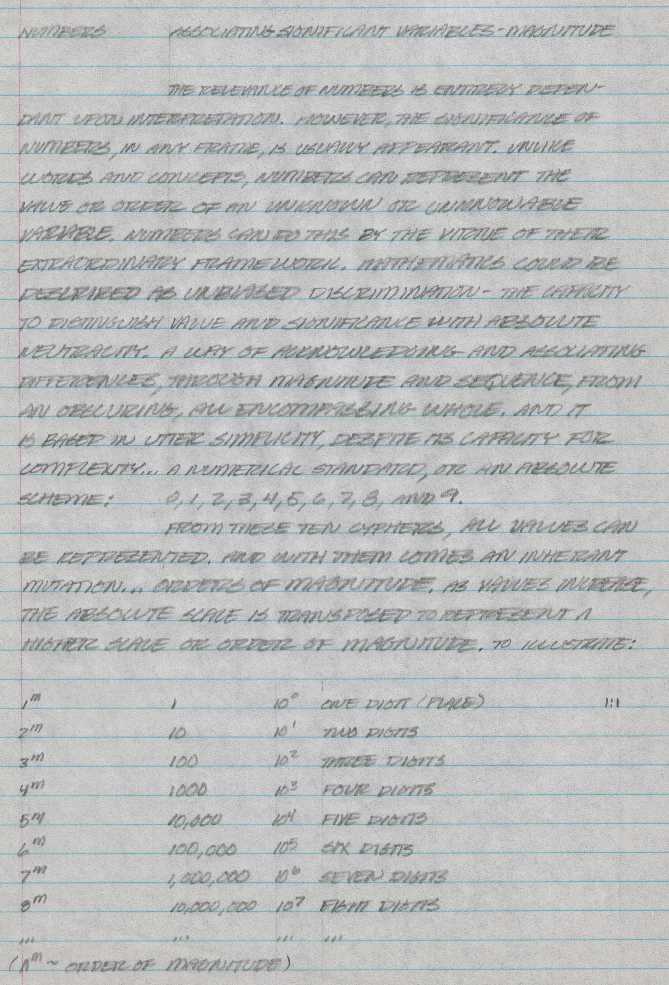 NUMBERS ASSOCIATING SIGNIFICANT VARIABLES - MAGNITUDE
THE RELEVANCE OF NUMBERS IS ENTIRELY DEPEN-
DANT UPON INTERPRETATION. HOWEVER, THE SIGNIFICANCE OF
NUMBERS, IN ANY FRAME, IS USUALLY APPEARANT. UNLIKE
WORDS AND CONCEPTS, NUMBERS CAN REPRESENT THE
VALUE OR ORDER OF AN UNKNOWN OR UNKNOWABLE
VARIABLE. NUMBERS CAN DO THIS BY THE VIRTUE OF THEIR
EXTRAORDINARY FRAMEWORK. MATHEMATICS COULD BE
DESCRIBED AS UNBIASED DISCRIMINATION - THE CAPACITY
TO DISTINGUISH VALUE AND SIGNIFICANCE WITH ABSOLUTE
NEUTRALITY. A WAY OF ACKNOWLEDGING AND ASSOCIATING
DIFFERENCES, THROUGH MAGNITUDE AND SEQUENCE, FROM
AN OBSCURING, ALL ENCOMPASSING WHOLE. AND IT
IS BASED IN UTTER SIMPLICITY, DESPITE ITS CAPACITY FOR
COMPLEXITY... A NUMERICAL STANDARD, OR AN ABSOLUTE
SCHEME: 0, 1, 2, 3, 4, 5, 6, 7, 8, AND 9.
FROM THESE TEN CYPHERS, ALL VALUES CAN
BE REPRESENTED. AND WITH THEM COMES AN INHERANT
MUTATION... ORDERS OF MAGNITUDE. AS VALUES INCREASE,
THE ABSOLUTE SCALE IS TRANSPOSED TO REPRESENT A
HIGHER SCALE OR ORDER OF MAGNITUDE. TO ILLUSTRATE:
1ᵐ 1 10⁰ ONE DIGIT (PLACE) 1:1
2ᵐ 10 10¹ TWO DIGITS
3ᵐ 100 10² THREE DIGITS
4ᵐ 1000 10³ FOUR DIGITS
5ᵐ 10,000 10⁴ FIVE DIGITS
6ᵐ 100,000 10⁵ SIX DIGITS
7ᵐ 1,000,000 10⁶ SEVEN DIGITS
8ᵐ 10,000,000 10⁷ EIGHT DIGITS
... ... ... ...
(nᵐ ~ ORDER OF MAGNITUDE)